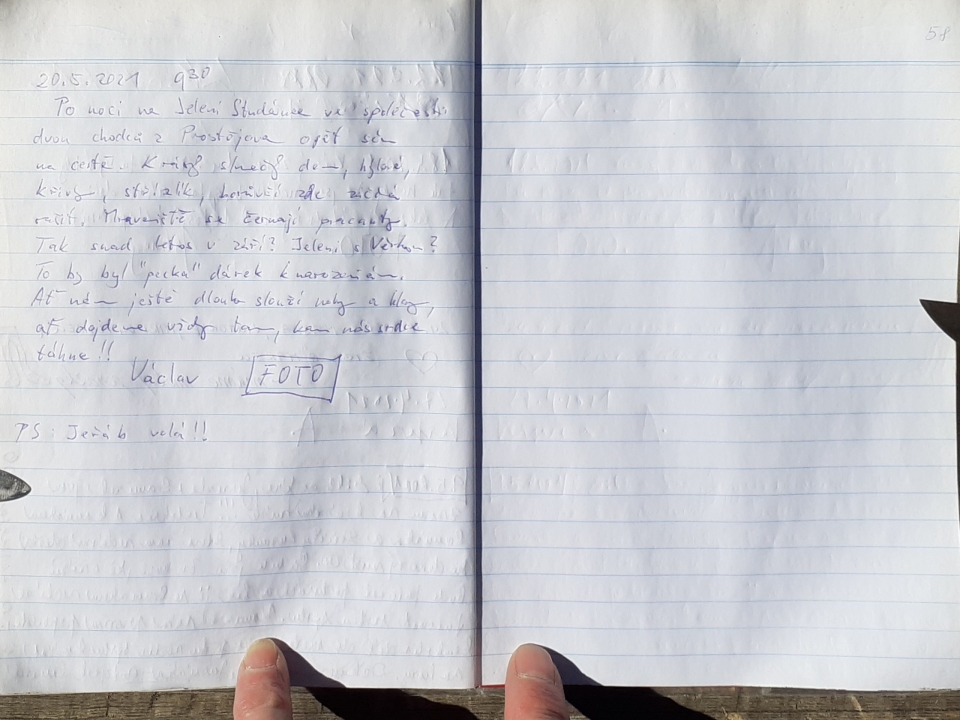 58
20.5.2021 9³⁰
Po noci na Jelení Studánce ve společnosti
dvou chodců z Prostějova opět sám
na cestě. Krásný slunečný den,
křivky, střízlík, zde začíná
rašit. Mraveniště se černají pracanty.
Tak snad letos v září? Jelení s Verkou?
To by byl "pecka" dárek k narozeninám.
Ať nám ještě dlouho slouží nohy a hlavy,
ať dojdeme vždy tam, kam nás srdce
táhne!!
Václav FOTO
PS: Jeřáb volá!!